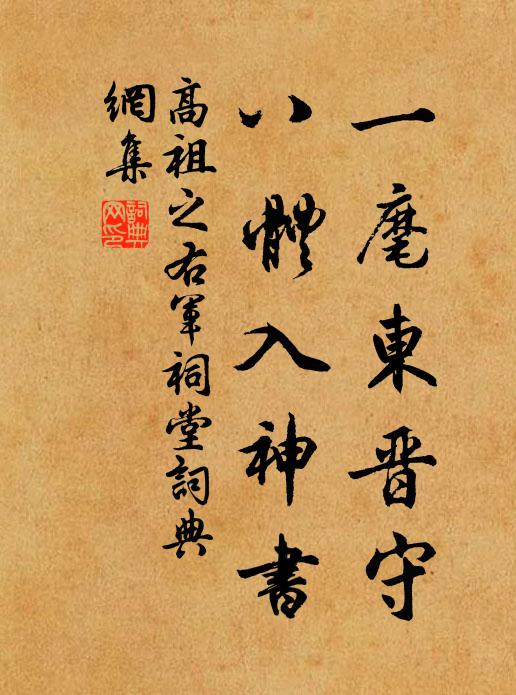 一麾東晋守
八體入神書
高祖之右軍祠堂詞典
網集
詞典
网印